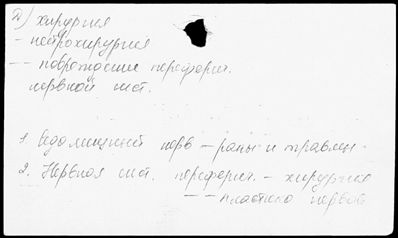 2) хирургия
- нейрохирургия
- - повреждения перефери.
нервной сист.
1. Седалищный нерв - раны и травмы.
2. Нервная сист. перефери. - хирургия
- - пластика нервов